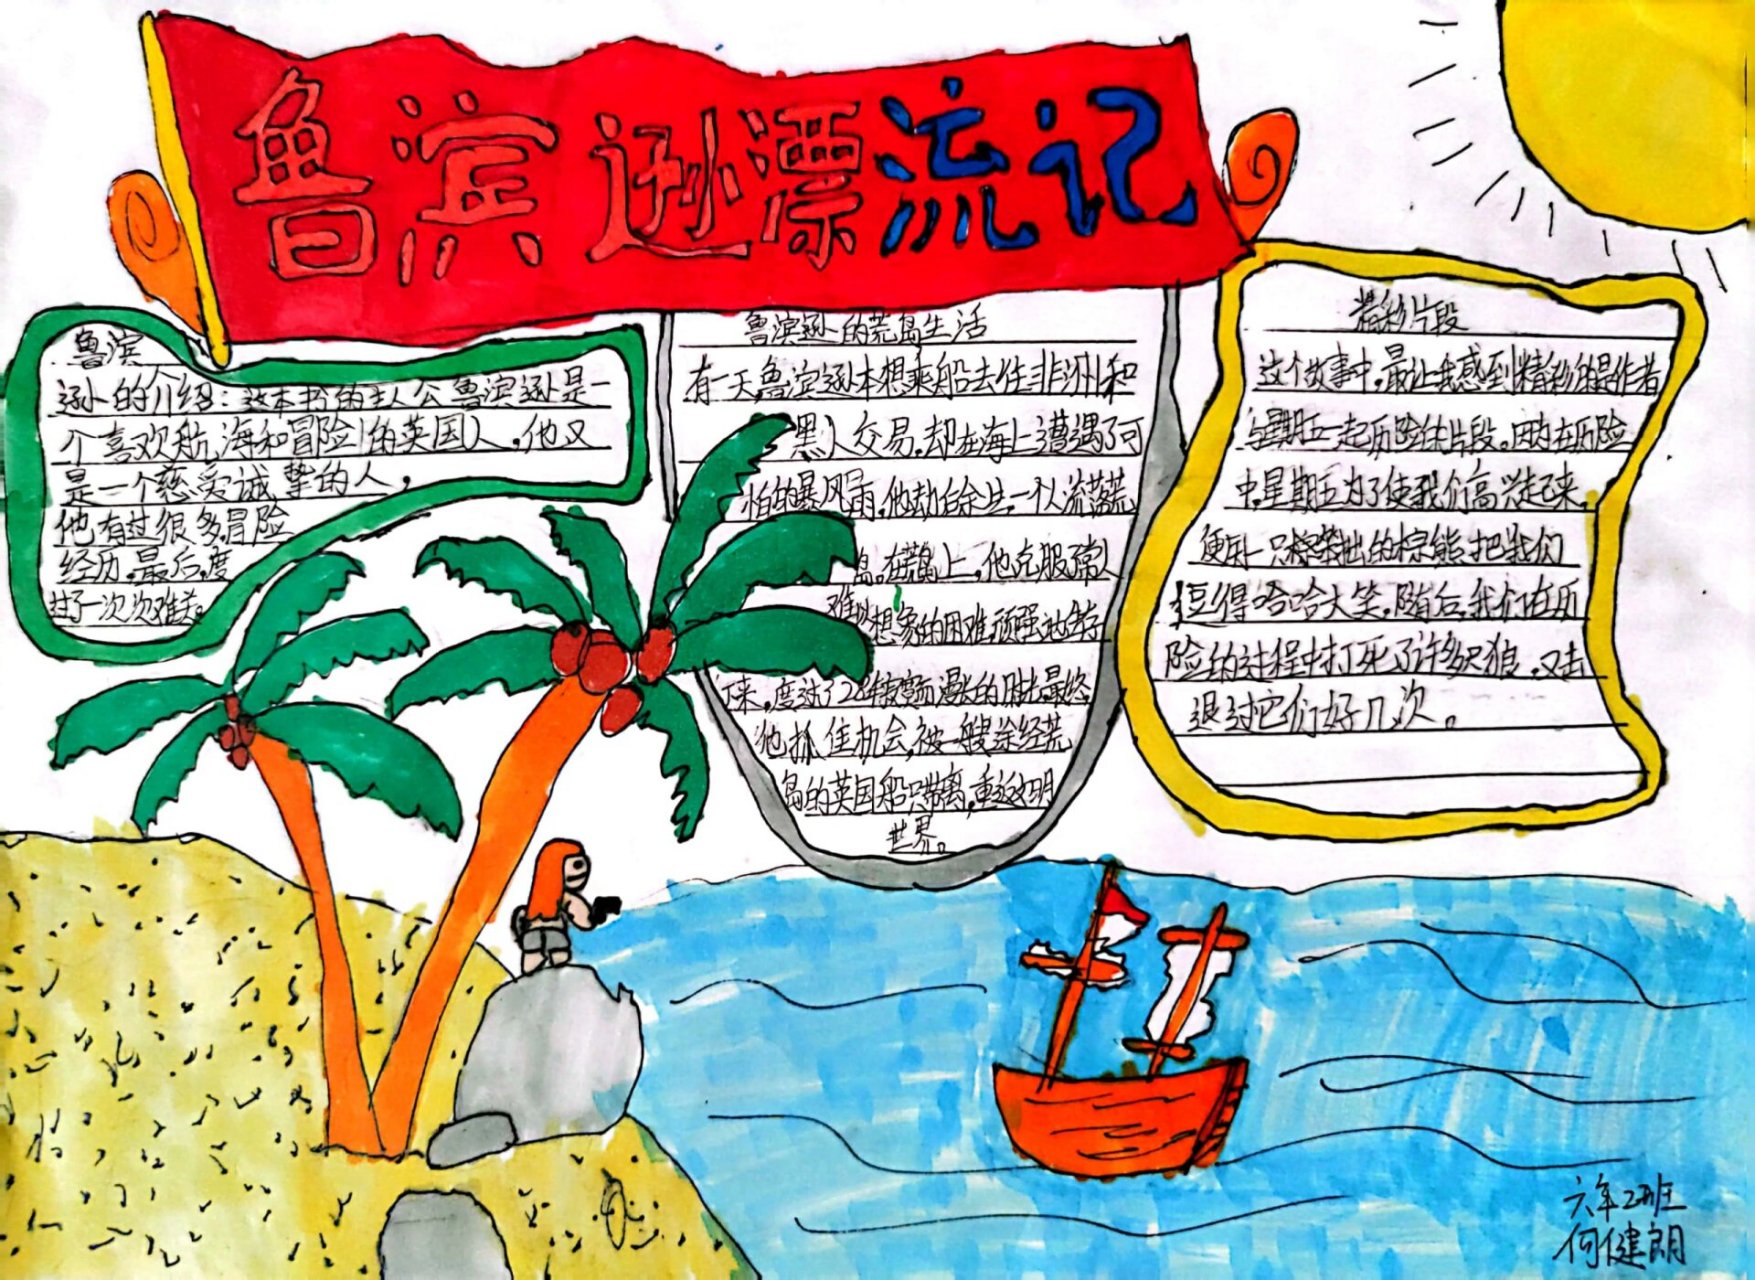 鲁滨逊漂流记
鲁滨
逊的介绍:这本书的主人公鲁滨逊是一
个喜欢航海和冒险的英国人,他又
是一个慈爱诚挚的人,
他有过很多冒险
经历,最后,度
过了一次次难关。
鲁滨逊的荒岛生活
有一天,鲁滨逊本想乘船去往非洲和
黑人交易,却在海上遭遇了可
怕的暴风雨,他劫后余生一个人流落荒
岛。在荒岛上,他克服了常人
难以想象的困难,顽强地活了
下来,度过了28年寂寞而漫长的时光,最终,
他抓住机会,被一艘途经荒
岛的英国船只带离,重返文明
世界。
精彩片段
这个故事中,最让我感到精彩的是作者
与星期五一起历险的片段。因为在历险
中,星期五为了使我们高兴起来,
便和一只笨出的棕熊把我们
逗得哈哈大笑。随后,我们在历
险的过程中打死了许多只狼,又击
退过它们好几次。
六年2班
何健朗